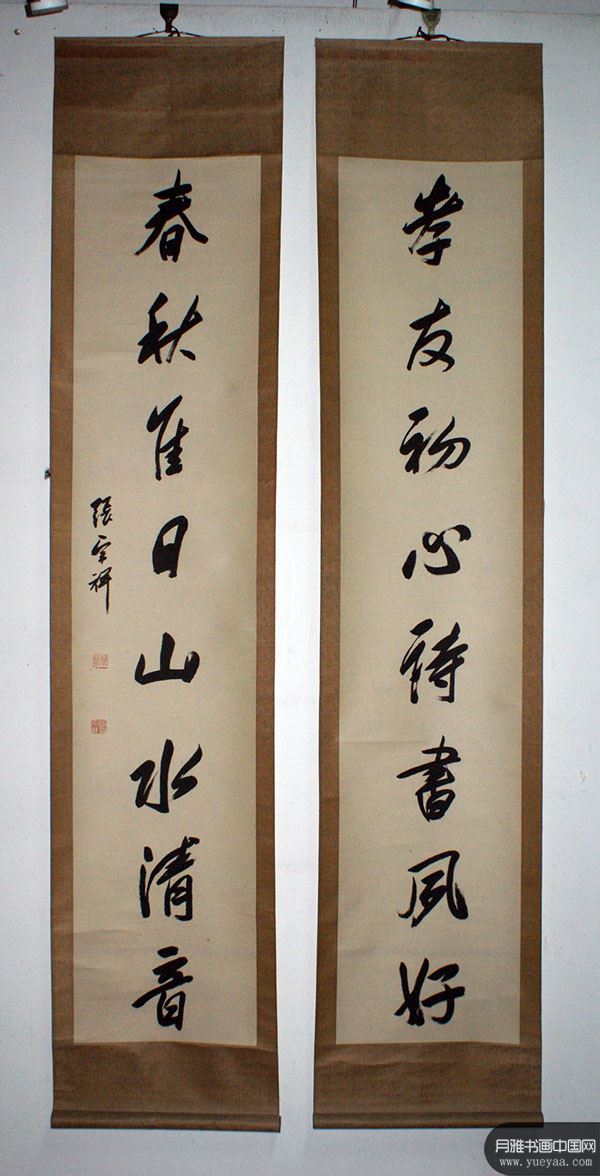 孝友初心詩書夙好
春秋佳日山水清音
張宗祥
月雅书画中国网
www.yueyaa.com